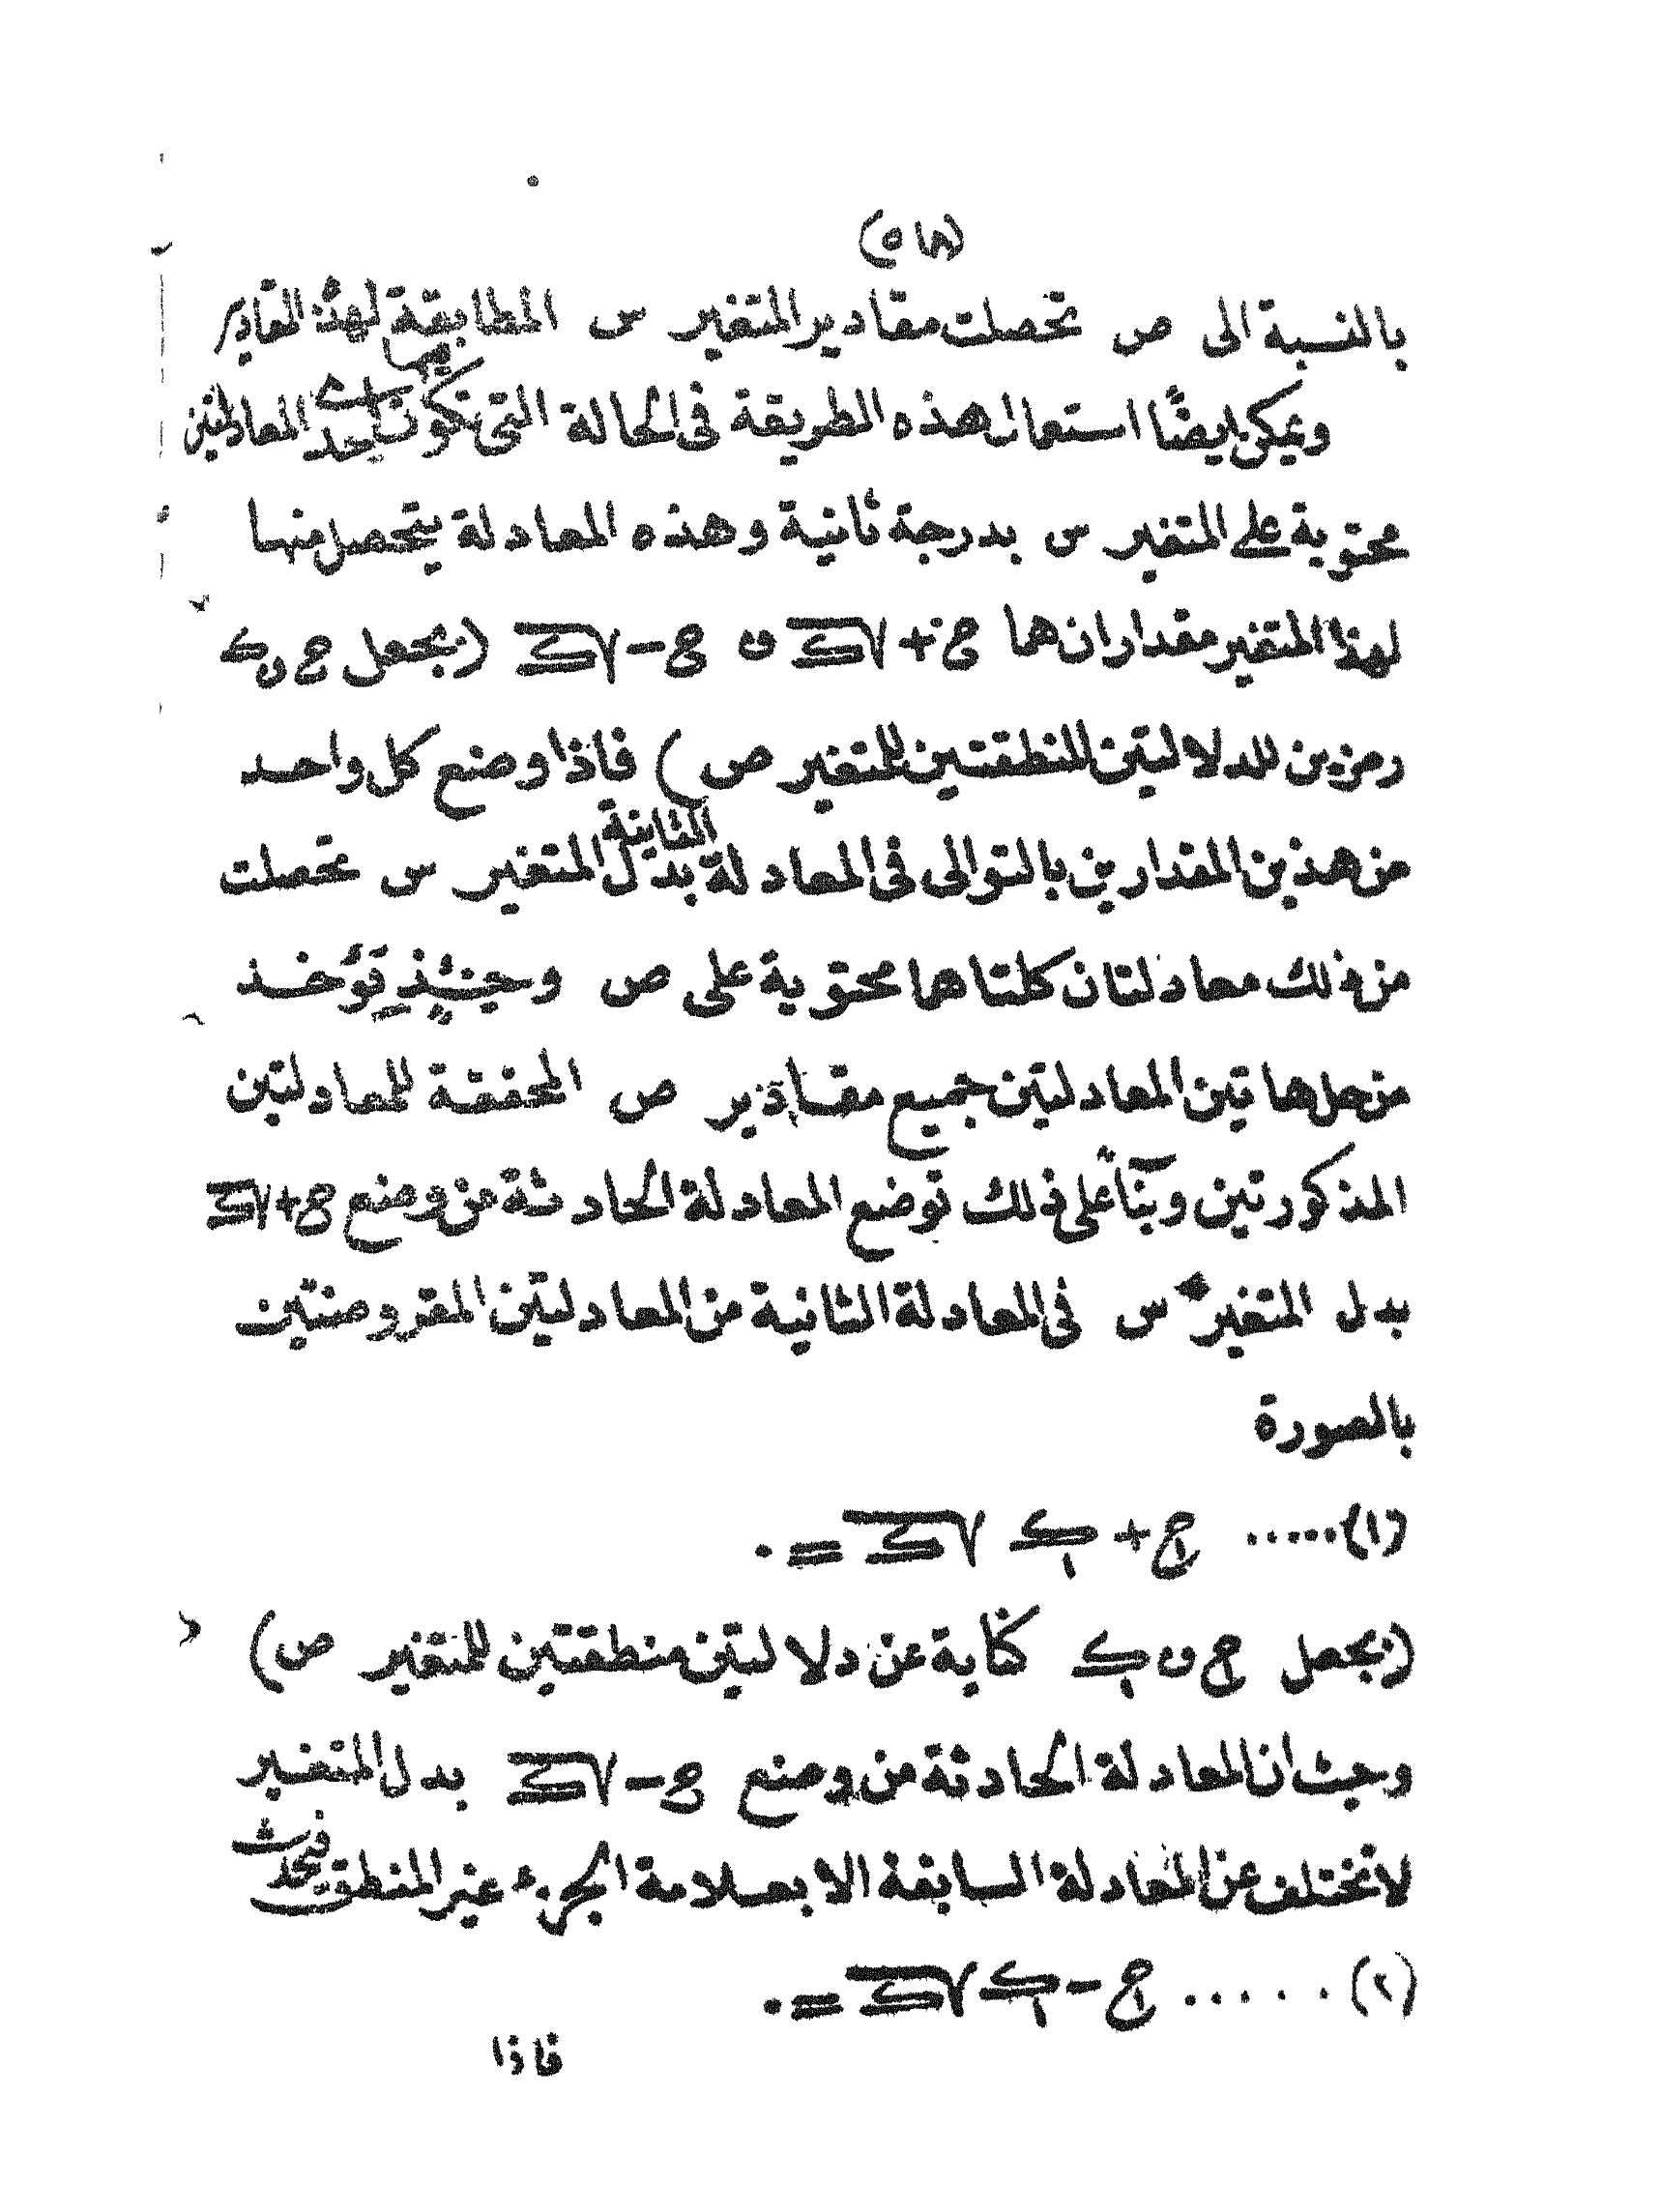 (٥٨)
بالنسبة الى ص تحصلت مقادير المتغير س المطابقة لهذه المقادير
ويمكن ايضًا استعمال هذه الطريقة فى الحالة التى تكون فيها احدى المعادلتين
محتوية على المتغير س بدرجة ثانية وهذه المعادلة يتحصل منها
لهذا المتغير مقداران هما ج + √ك و ج − √ك (بجعل ج و ك
رمزين للدلالتين المنطقتين للمتغير ص) فاذا وضع كل واحد
من هذين المقدارين بالتوالى فى المعادلة الثانية بدل المتغير س تحصلت
من ذلك معادلتان كلتاهما محتوية على ص وحينئذٍ تؤخذ
من حل هاتين المعادلتين جميع مقادير ص المحققة للمعادلتين
المذكورتين وبنآءً على ذلك توضع المعادلة الحادثة من وضع ج + √ك
بدل المتغير س فى المعادلة الثانية من المعادلتين المفروضتين
بالصورة
(١)..... ج + ك √ك = ٠
(بجعل ج و ك كناية عن دلالتين منطقتين للمتغير ص)
وحيث ان المعادلة الحادثة من وضع ج − √ك بدل المتغير
لا تختلف عن المعادلة السابقة الا بعلامة الجزء غير المنطق فيحدث
(٢)..... ج − ك √ك = ٠
فاذا